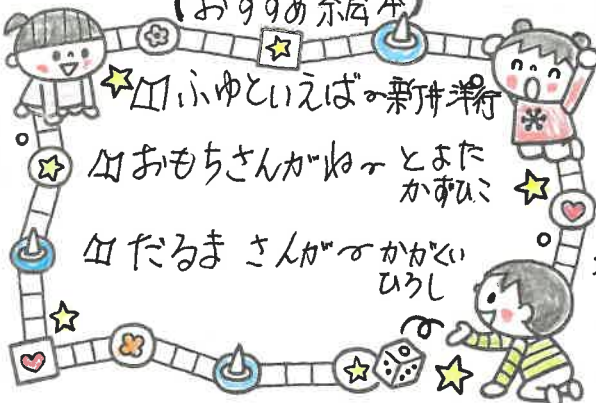 (おすすめ絵本)
ふゆといえば〜新井洋行
おもちさんがね〜とよた
かずひこ
だるまさんが〜かがくい
ひろし